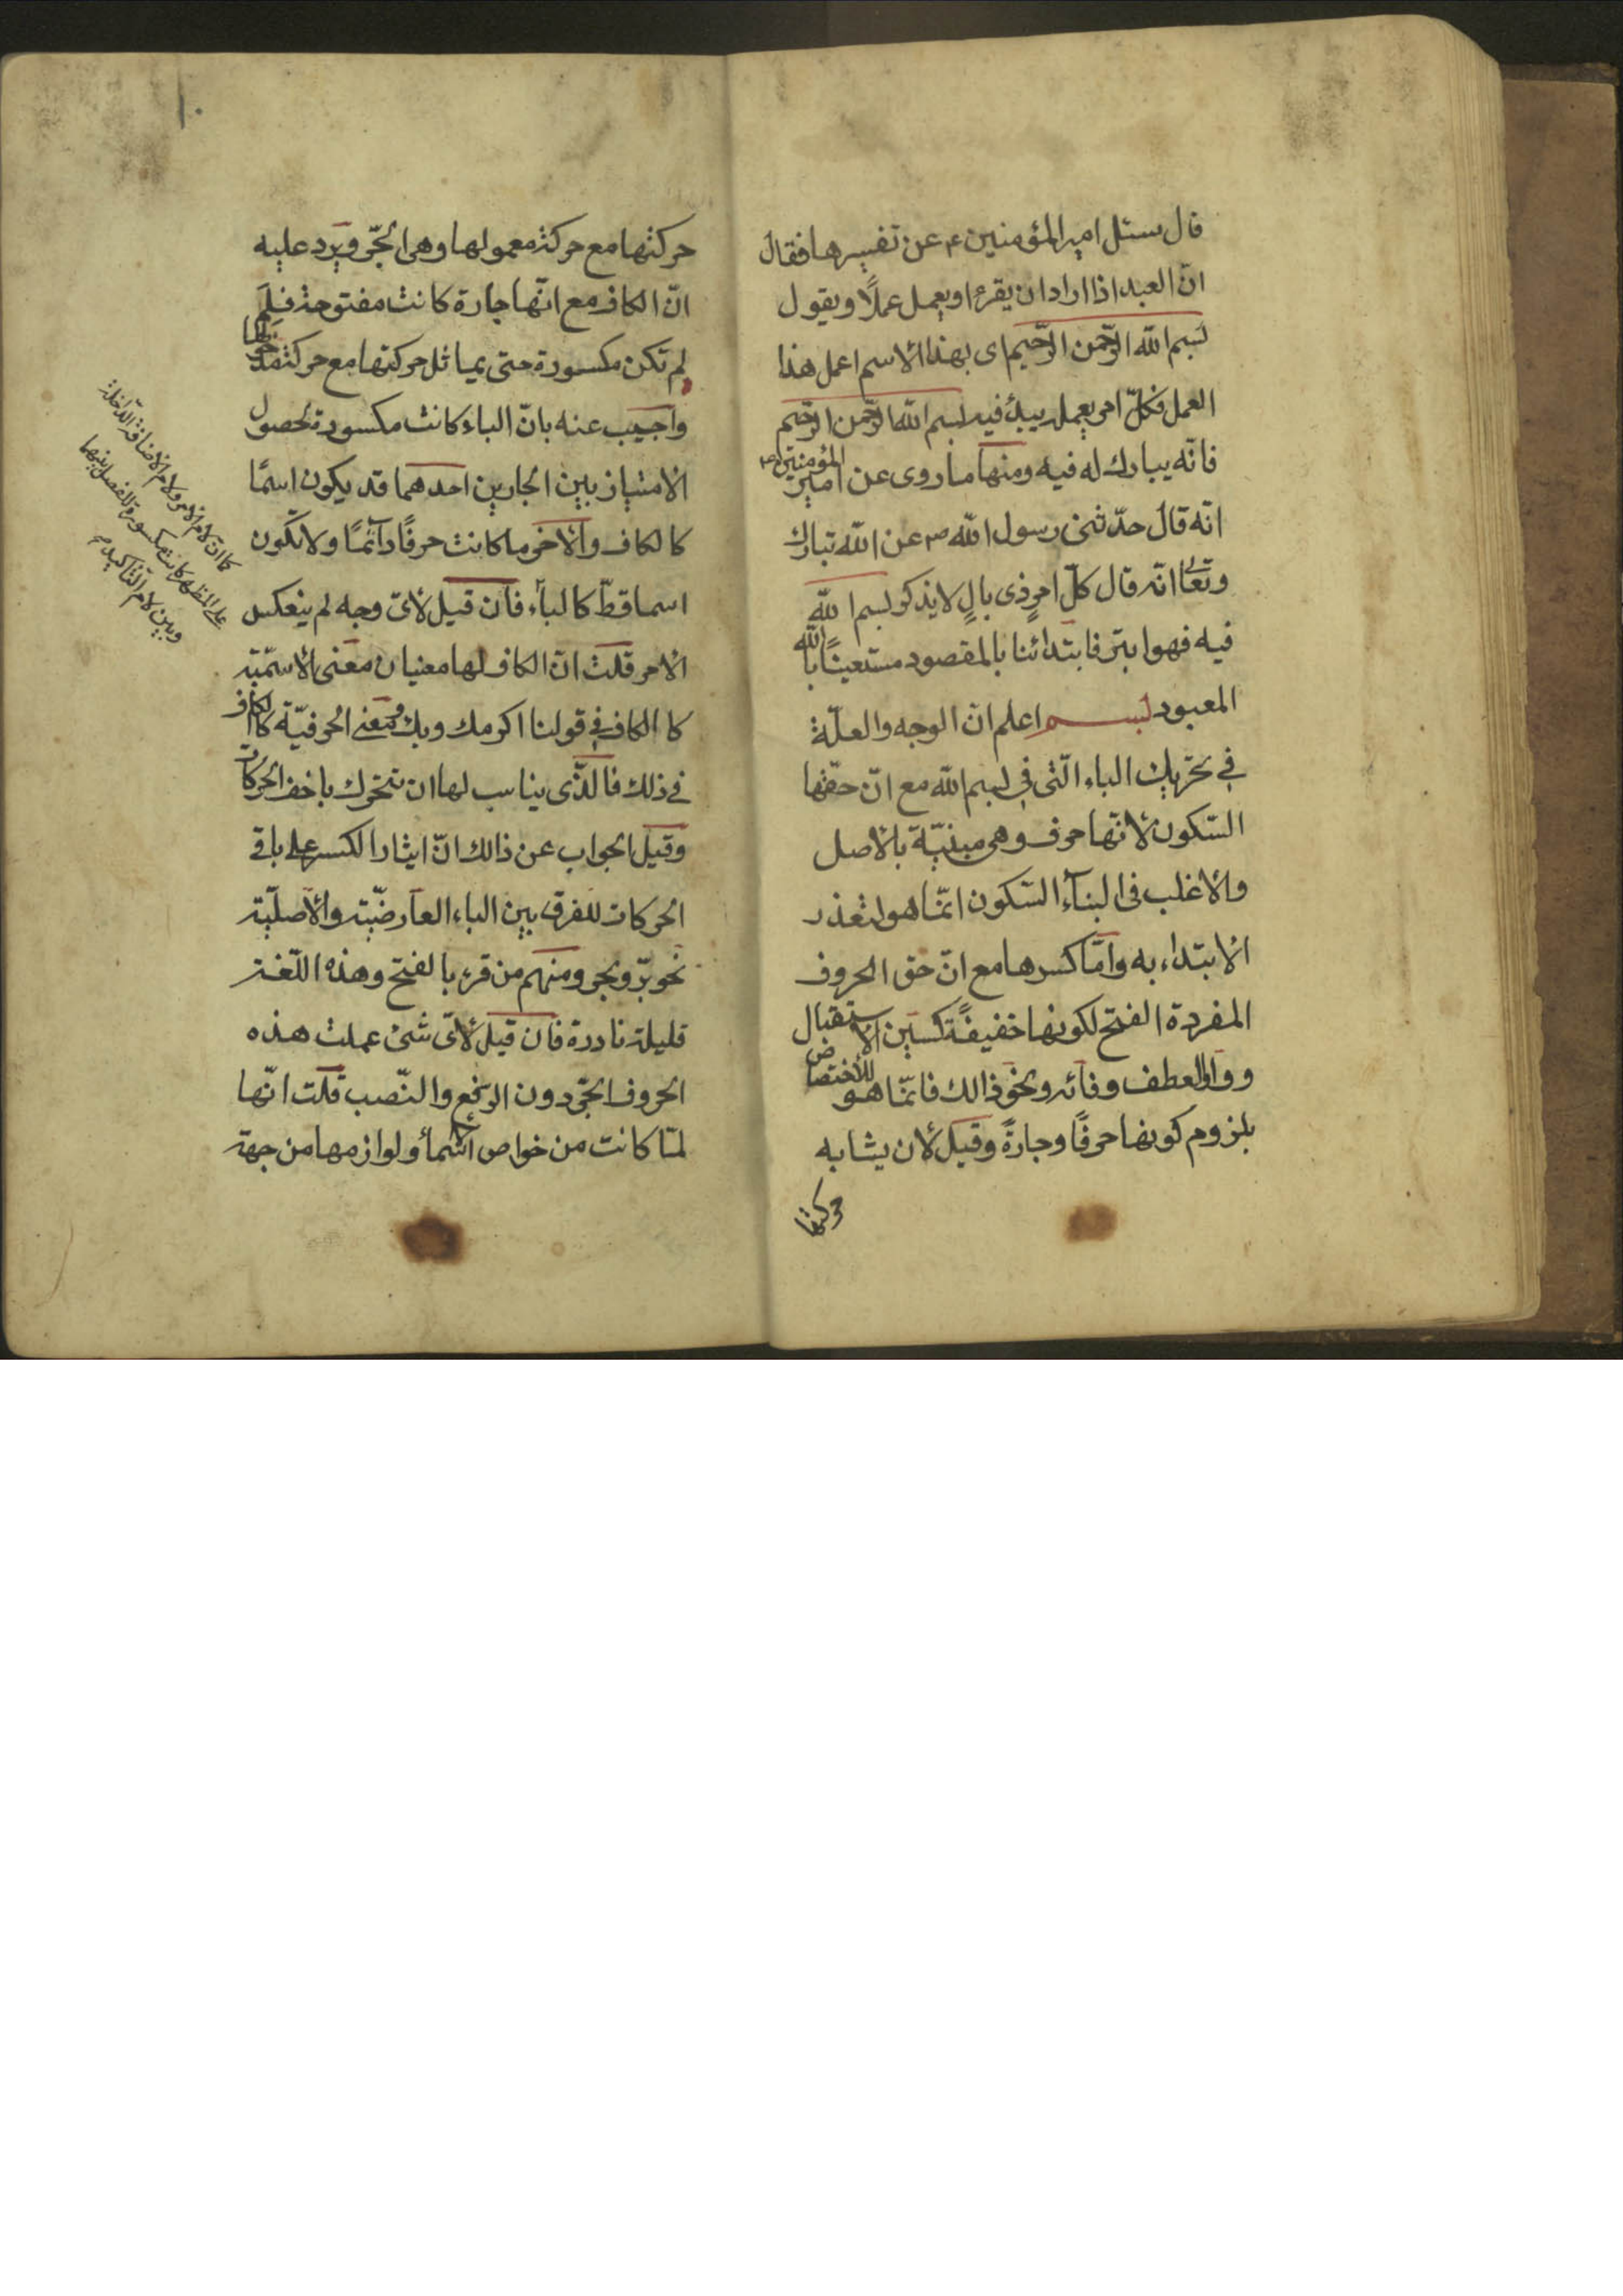 قال سئل امير المؤمنين ع عن تفسيرها فقال
انّ العبد اذا اراد ان يقرء او يعمل عملًا ويقول
بسم الله الرّحمن الرّحيم اى بهذا الاسم اعمل هذا
العمل فكلّ امر يعمله يبدء فيه بسم الله الرّحمن الرّحيم
فانّه يبارك له فيه ومنها ما روى عن امير المؤمنين ع
انّه قال حدّثنى رسول الله ص عن الله تبارك
وتعالى انّه قال كلّ امرٍ ذى بالٍ لا يذكر بسم الله
فيه فهو ابتر فابتدائنا بالمقصود مستعينًا بالله
المعبود بسم اعلم انّ الوجه والعلّة
فى تحريك الباء الّتى فى بسم الله مع انّ حقّها
السّكون لأنّها حرف وهى مبنيّة بالاصل
والاغلب فى البنآء السّكون انّما هو لتعذر
الابتداء به وامّا كسرها مع انّ حق الحروف
المفردة الفتح لكونها خفيفةً كسين الاستقبال
وواو العطف وفآئه ونحو ذالك فانّما هو للاختصاص
بلزوم كونها حرفًا وجارةً وقيل لأن يشابه
حركتها
١٠
حركتها مع حركة معمولها وهى الجّر ويرد عليه
انّ الكاف مع انّها جارة كانت مفتوحة فلم
لم تكن مكسورة حتى يماثل حركتها مع حركة مدخولها
واجيب عنه بانّ الباء كانت مكسورة لحصول
الامتياز بين الجارين احدهما قد يكون اسمًا
كالكاف والآخر ما كانت حرفًا دآئمًا ولا يكون
اسما قطّ كالبآء فان قيل لأىّ وجه لم ينعكس
الامر قلت انّ الكاف لها معنيان معنى الاسميّة
كا الكاف فى قولنا اكرمك وبك ومعنى الحرفيّة كا الكاف
فى ذلك فالّذى يناسب لها ان تتحرك باخف الحركات
وقيل الجواب عن ذالك انّ ايثار الكسر على باقى
الحركات للفرق بين الباء العارضيّة والاصليّة
نحو برّ وبجر ومنهم من قرء بالفتح وهذه اللّغة
قليلة نادرة فان قيل لأىّ شئ عملت هذه
الحروف الجّر دون الرّفع والنّصب قلت انّها
لمّا كانت من خواص الاسمآء ولوازمها من جهة
كما انّ لام الامر ولام الاضافة الدّاخلة
على المظهر كانت مكسورة للفصل بينهما
وبين لام التّأكيد م